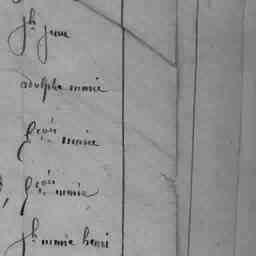 jh
adolphe marie
fçois marie
fçois marie
jh marie henri